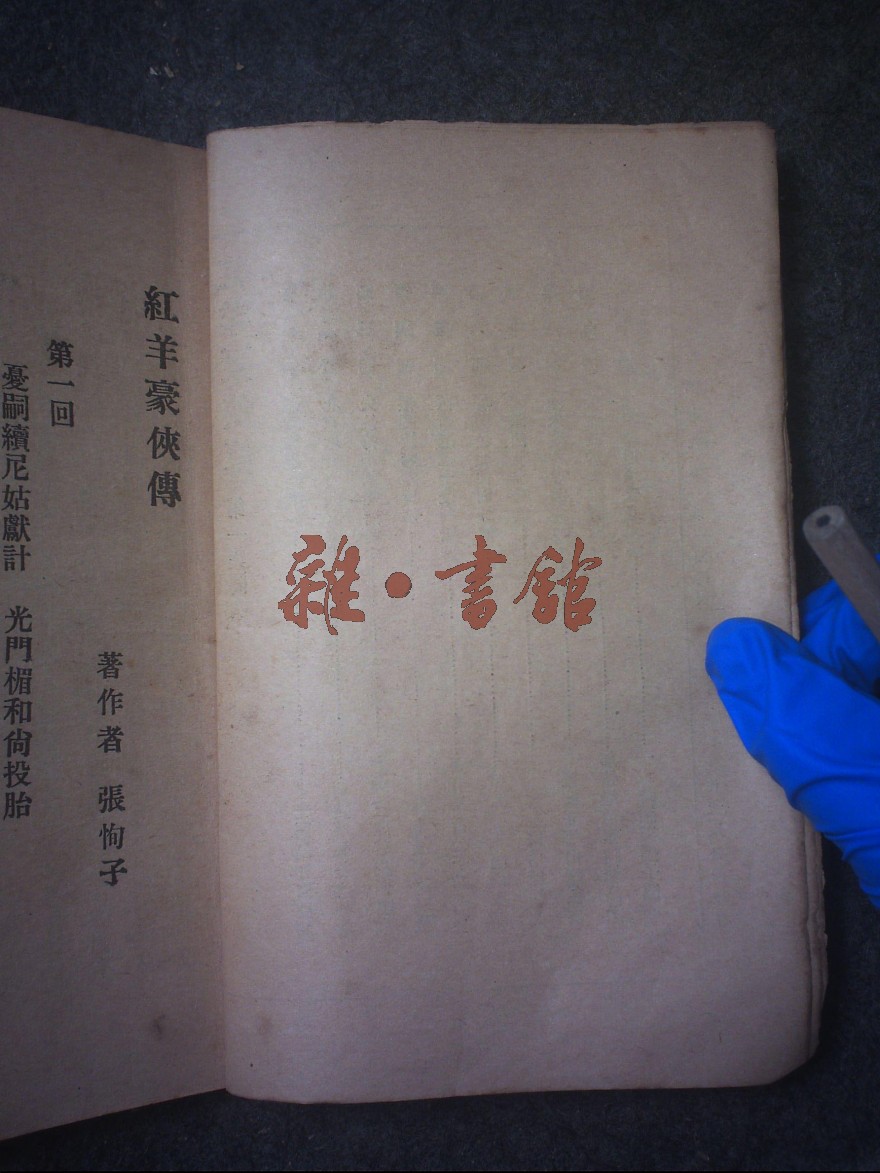 紅羊豪俠傳
著作者 張恂子
第一回
憂嗣續尼姑獻計 光門楣和尙投胎
雜•書館